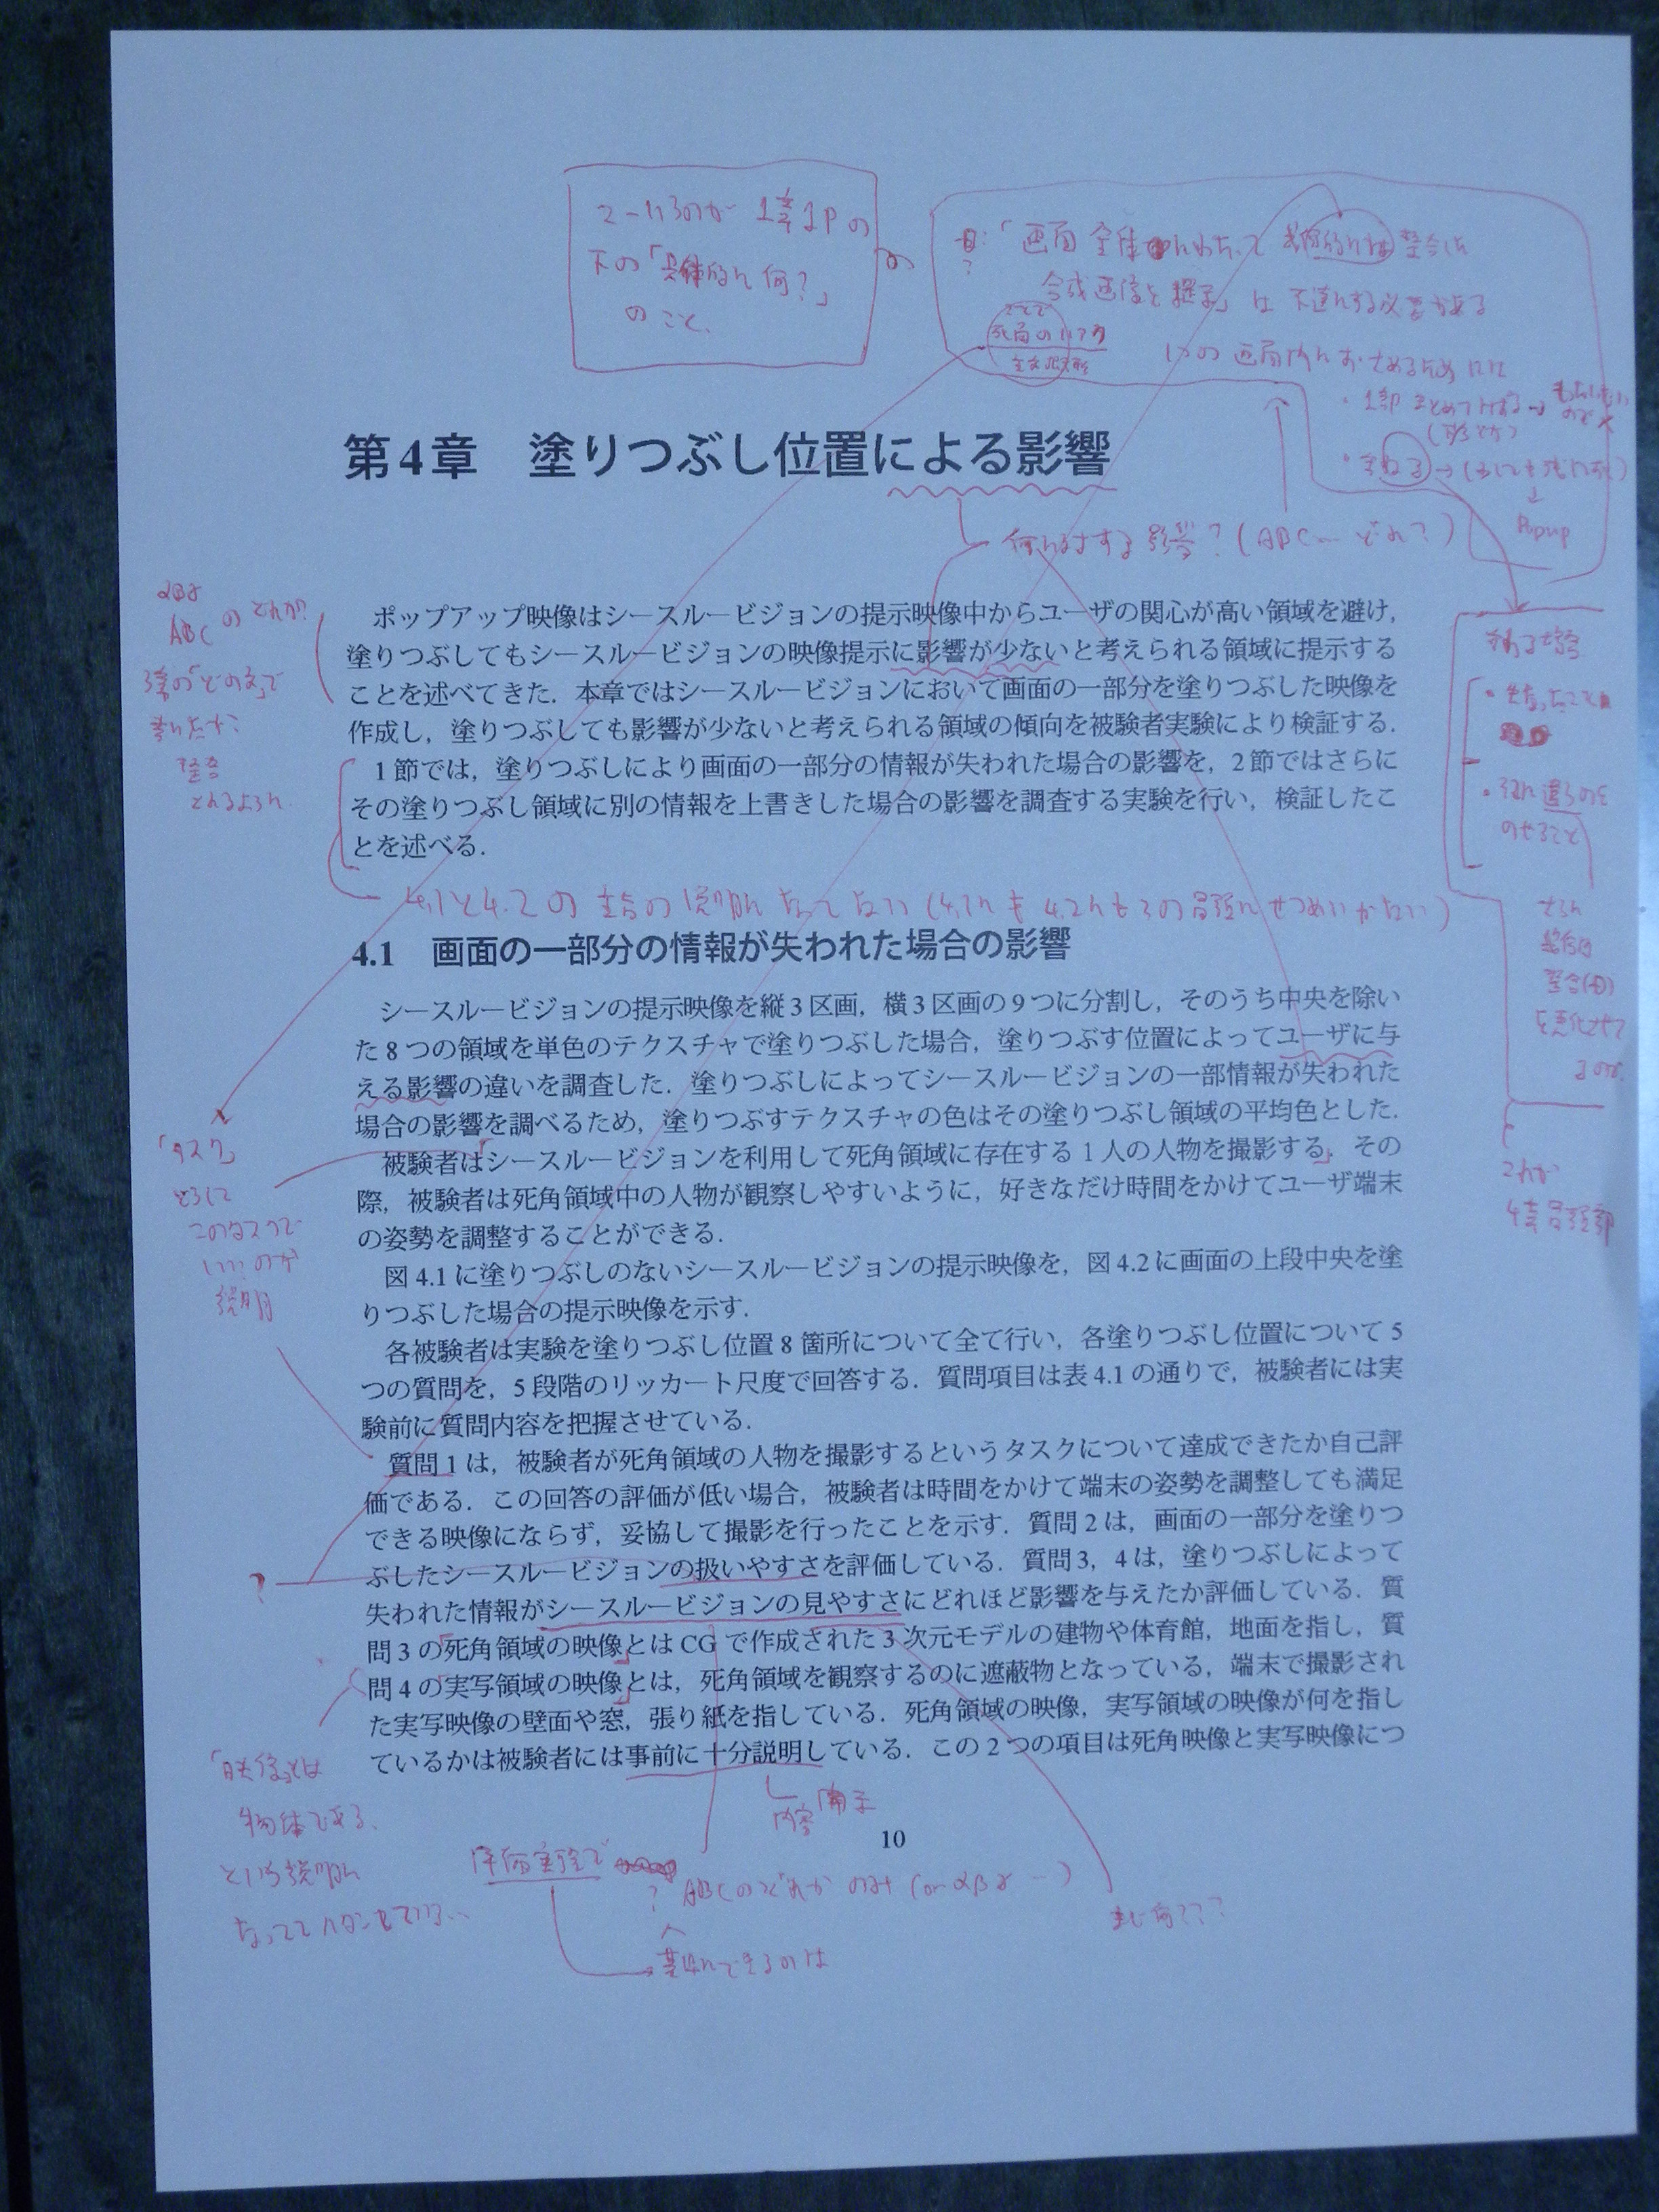 というのが 1章1Pの
下の「具体的に何?」
のこと、
合成画像を提示」は不達にする必要がある
Popup
第4章 塗りつぶし位置による影響
何に対する影響?(ABC…どれ?)
ABCのどれか?
ポップアップ映像はシースルービジョンの提示映像中からユーザの関心が高い領域を避け,
塗りつぶしてもシースルービジョンの映像提示に影響が少ないと考えられる領域に提示する
ことを述べてきた.本章ではシースルービジョンにおいて画面の一部分を塗りつぶした映像を
作成し,塗りつぶしても影響が少ないと考えられる領域の傾向を被験者実験により検証する.
1節では,塗りつぶしにより画面の一部分の情報が失われた場合の影響を,2節ではさらに
その塗りつぶし領域に別の情報を上書きした場合の影響を調査する実験を行い,検証したこ
とを述べる.
のせること
4.1と4.2の の説明になってない(4.1にも4.2にもその冒頭にせつめいがない)
4.1 画面の一部分の情報が失われた場合の影響
シースルービジョンの提示映像を縦3区画,横3区画の9つに分割し,そのうち中央を除い
た8つの領域を単色のテクスチャで塗りつぶした場合,塗りつぶす位置によってユーザに与
える影響の違いを調査した.塗りつぶしによってシースルービジョンの一部情報が失われた
場合の影響を調べるため,塗りつぶすテクスチャの色はその塗りつぶし領域の平均色とした.
被験者はシースルービジョンを利用して死角領域に存在する1人の人物を撮影する.その
際,被験者は死角領域中の人物が観察しやすいように,好きなだけ時間をかけてユーザ端末
の姿勢を調整することができる.
図4.1に塗りつぶしのないシースルービジョンの提示映像を,図4.2に画面の上段中央を塗
りつぶした場合の提示映像を示す.
各被験者は実験を塗りつぶし位置8箇所について全て行い,各塗りつぶし位置について5
つの質問を,5段階のリッカート尺度で回答する.質問項目は表4.1の通りで,被験者には実
験前に質問内容を把握させている.
質問1は,被験者が死角領域の人物を撮影するというタスクについて達成できたか自己評
価である.この回答の評価が低い場合,被験者は時間をかけて端末の姿勢を調整しても満足
できる映像にならず,妥協して撮影を行ったことを示す.質問2は,画面の一部分を塗りつ
ぶしたシースルービジョンの扱いやすさを評価している.質問3,4は,塗りつぶしによって
失われた情報がシースルービジョンの見やすさにどれほど影響を与えたか評価している.質
問3の「死角領域の映像」とはCGで作成された3次元モデルの建物や体育館,地面を指し,質
問4の「実写領域の映像」とは,死角領域を観察するのに遮蔽物となっている,端末で撮影され
た実写映像の壁面や窓,張り紙を指している.死角領域の映像,実写領域の映像が何を指し
ているかは被験者には事前に十分説明している.この2つの項目は死角映像と実写映像につ
「タスク」
どうして
このタスクで
いいのか
説明
これが
4章冒頭部
?
「映像」とは
物体である.
という説明に
なっててハタンしている…
内容 開示
10
評価実験で
? ABCのどれかのみ (or αβγ…)
基準にできるのは